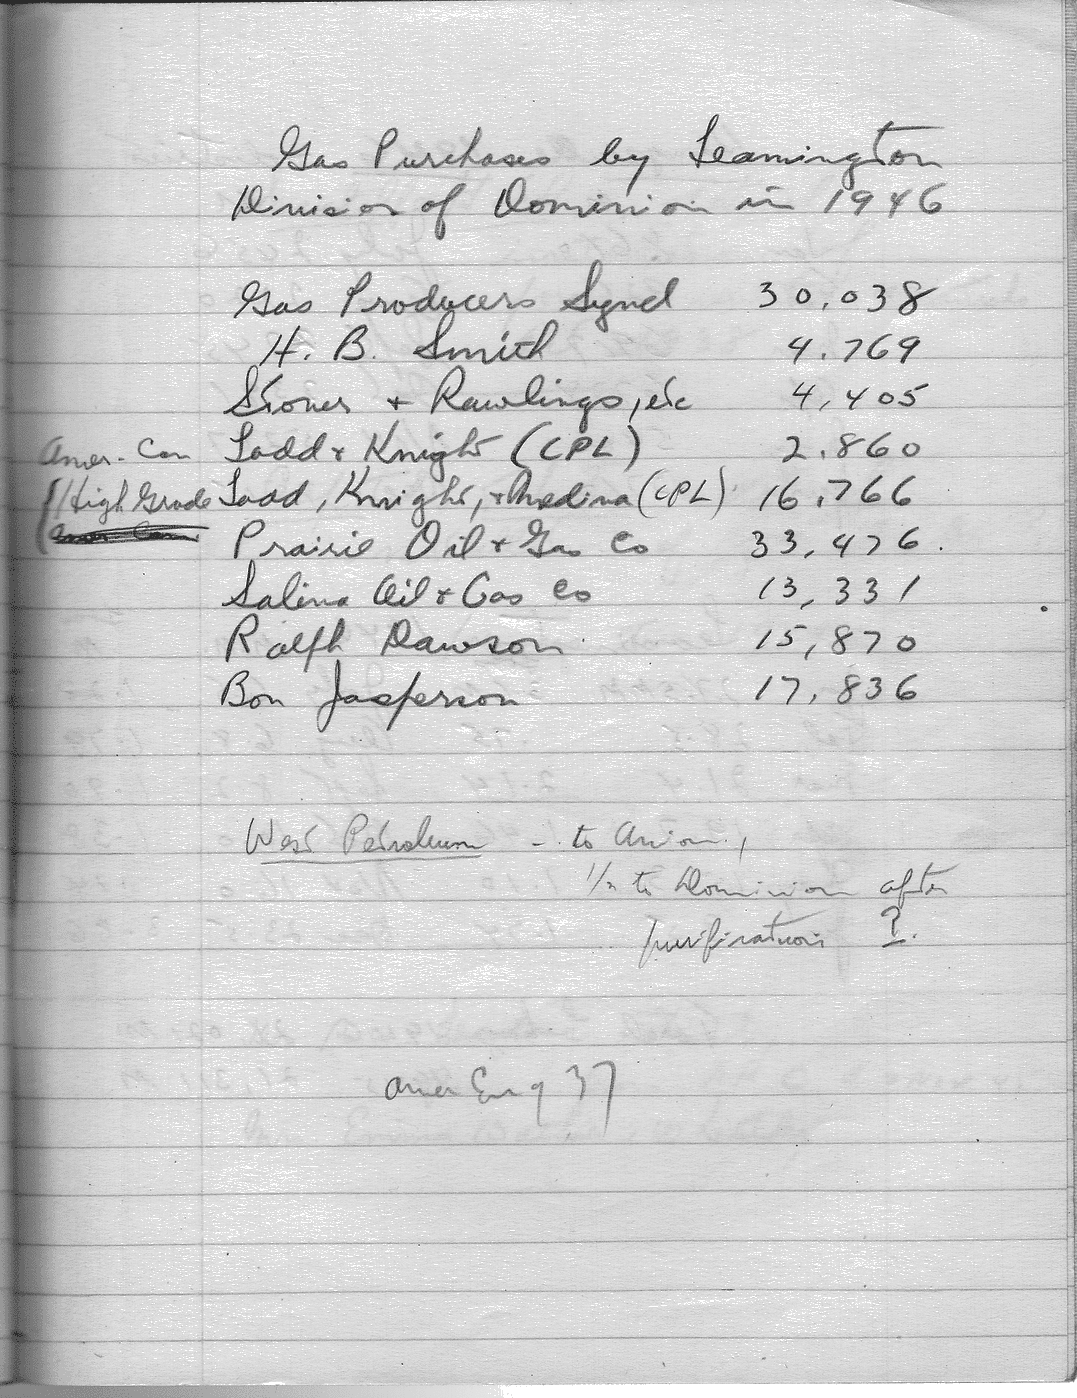 Gas Purchases by Leamington
Division of Dominion in 1946
Gas Producers Synd 30,038
H. B. Smith 4,769
Stoner + Rawlings, etc 4,405
Amer-Can Todd + Knight (CPL) 2,860
High Grade Todd, Knight, + Medina (CPL) 16,766
Prairie Oil + Gas Co 33,476.
Salina Oil + Gas Co 13,331
Ralph Dawson 15,870
Bon Jasperson 17,836
West Petroleum - to Union,
1/2 to Dominion after
purification ?.
Amer Eng 37